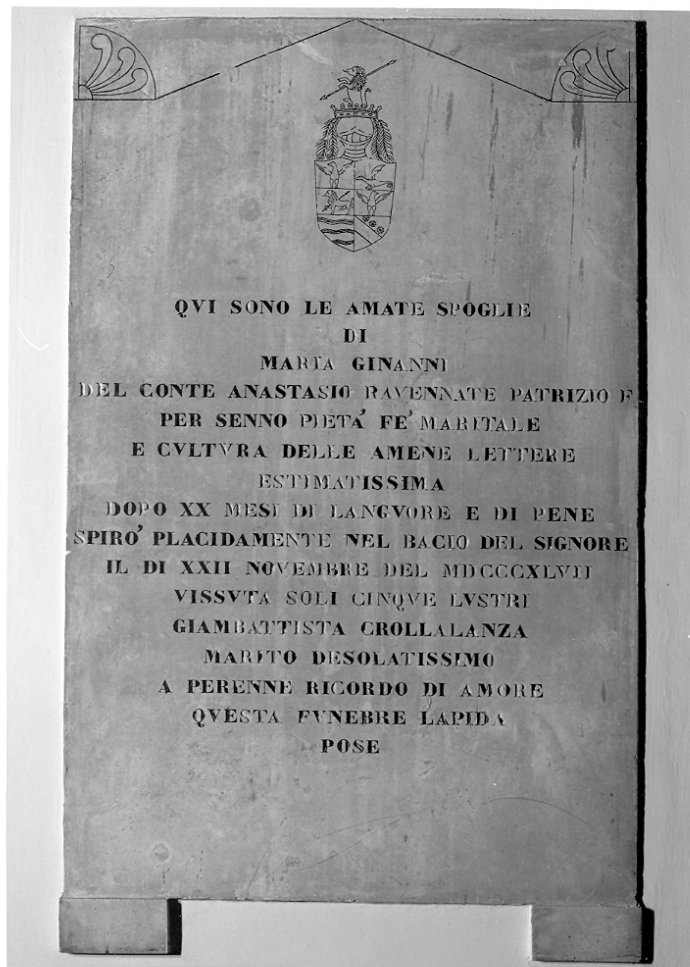 QVI SONO LE AMATE SPOGLIE
DI
MARIA GINANNI
DEL CONTE ANASTASIO RAVENNATE PATRIZIO F
PER SENNO PIETA' FE' MARITALE
E CVLTVRA DELLE AMENE LETTERE
ESTIMATISSIMA
DOPO XX MESI DI LANGVORE E DI PENE
SPIRO' PLACIDAMENTE NEL BACIO DEL SIGNORE
IL DI XXII NOVEMBRE DEL MDCCCXLVII
VISSVTA SOLI CINQVE LVSTRI
GIAMBATTISTA CROLLALANZA
MARITO DESOLATISSIMO
A PERENNE RICORDO DI AMORE
QVESTA FVNEBRE LAPIDA
POSE